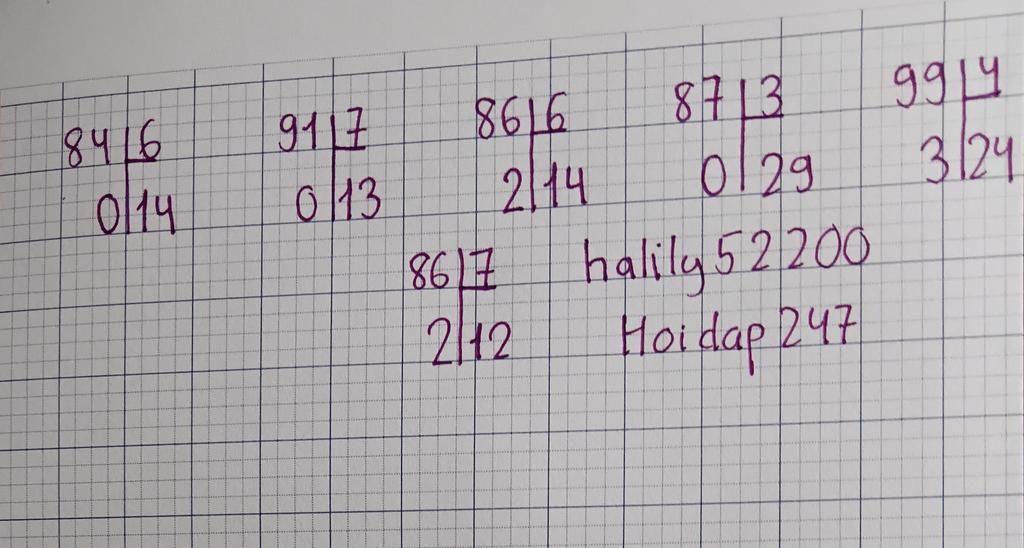 84 6 91 7 86 6 87 3 99 4
0 14 0 13 2 14 0 29 3 24
86 7 halily52200
2 12 Hoidap247